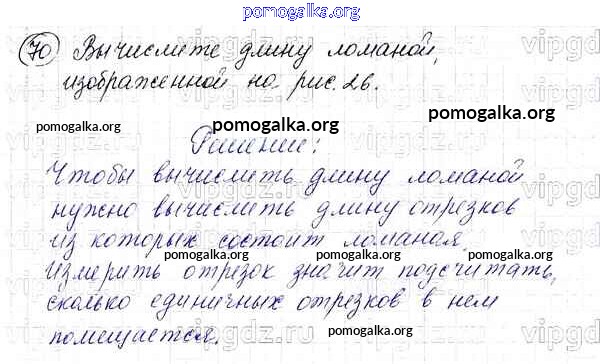 pomogalka.org
70 Вычислите длину ломаной,
изображенной на рис. 26.
pomogalka.org pomogalka.org pomogalka.org
Решение:
Чтобы вычислить длину ломаной
нужно вычислить длину отрезков
из которых состоит ломаная.
pomogalka.org pomogalka.org
Измерить отрезок значит подсчитать,
сколько единичных отрезков в нем
помещается.
pomogalka.org pomogalka.org